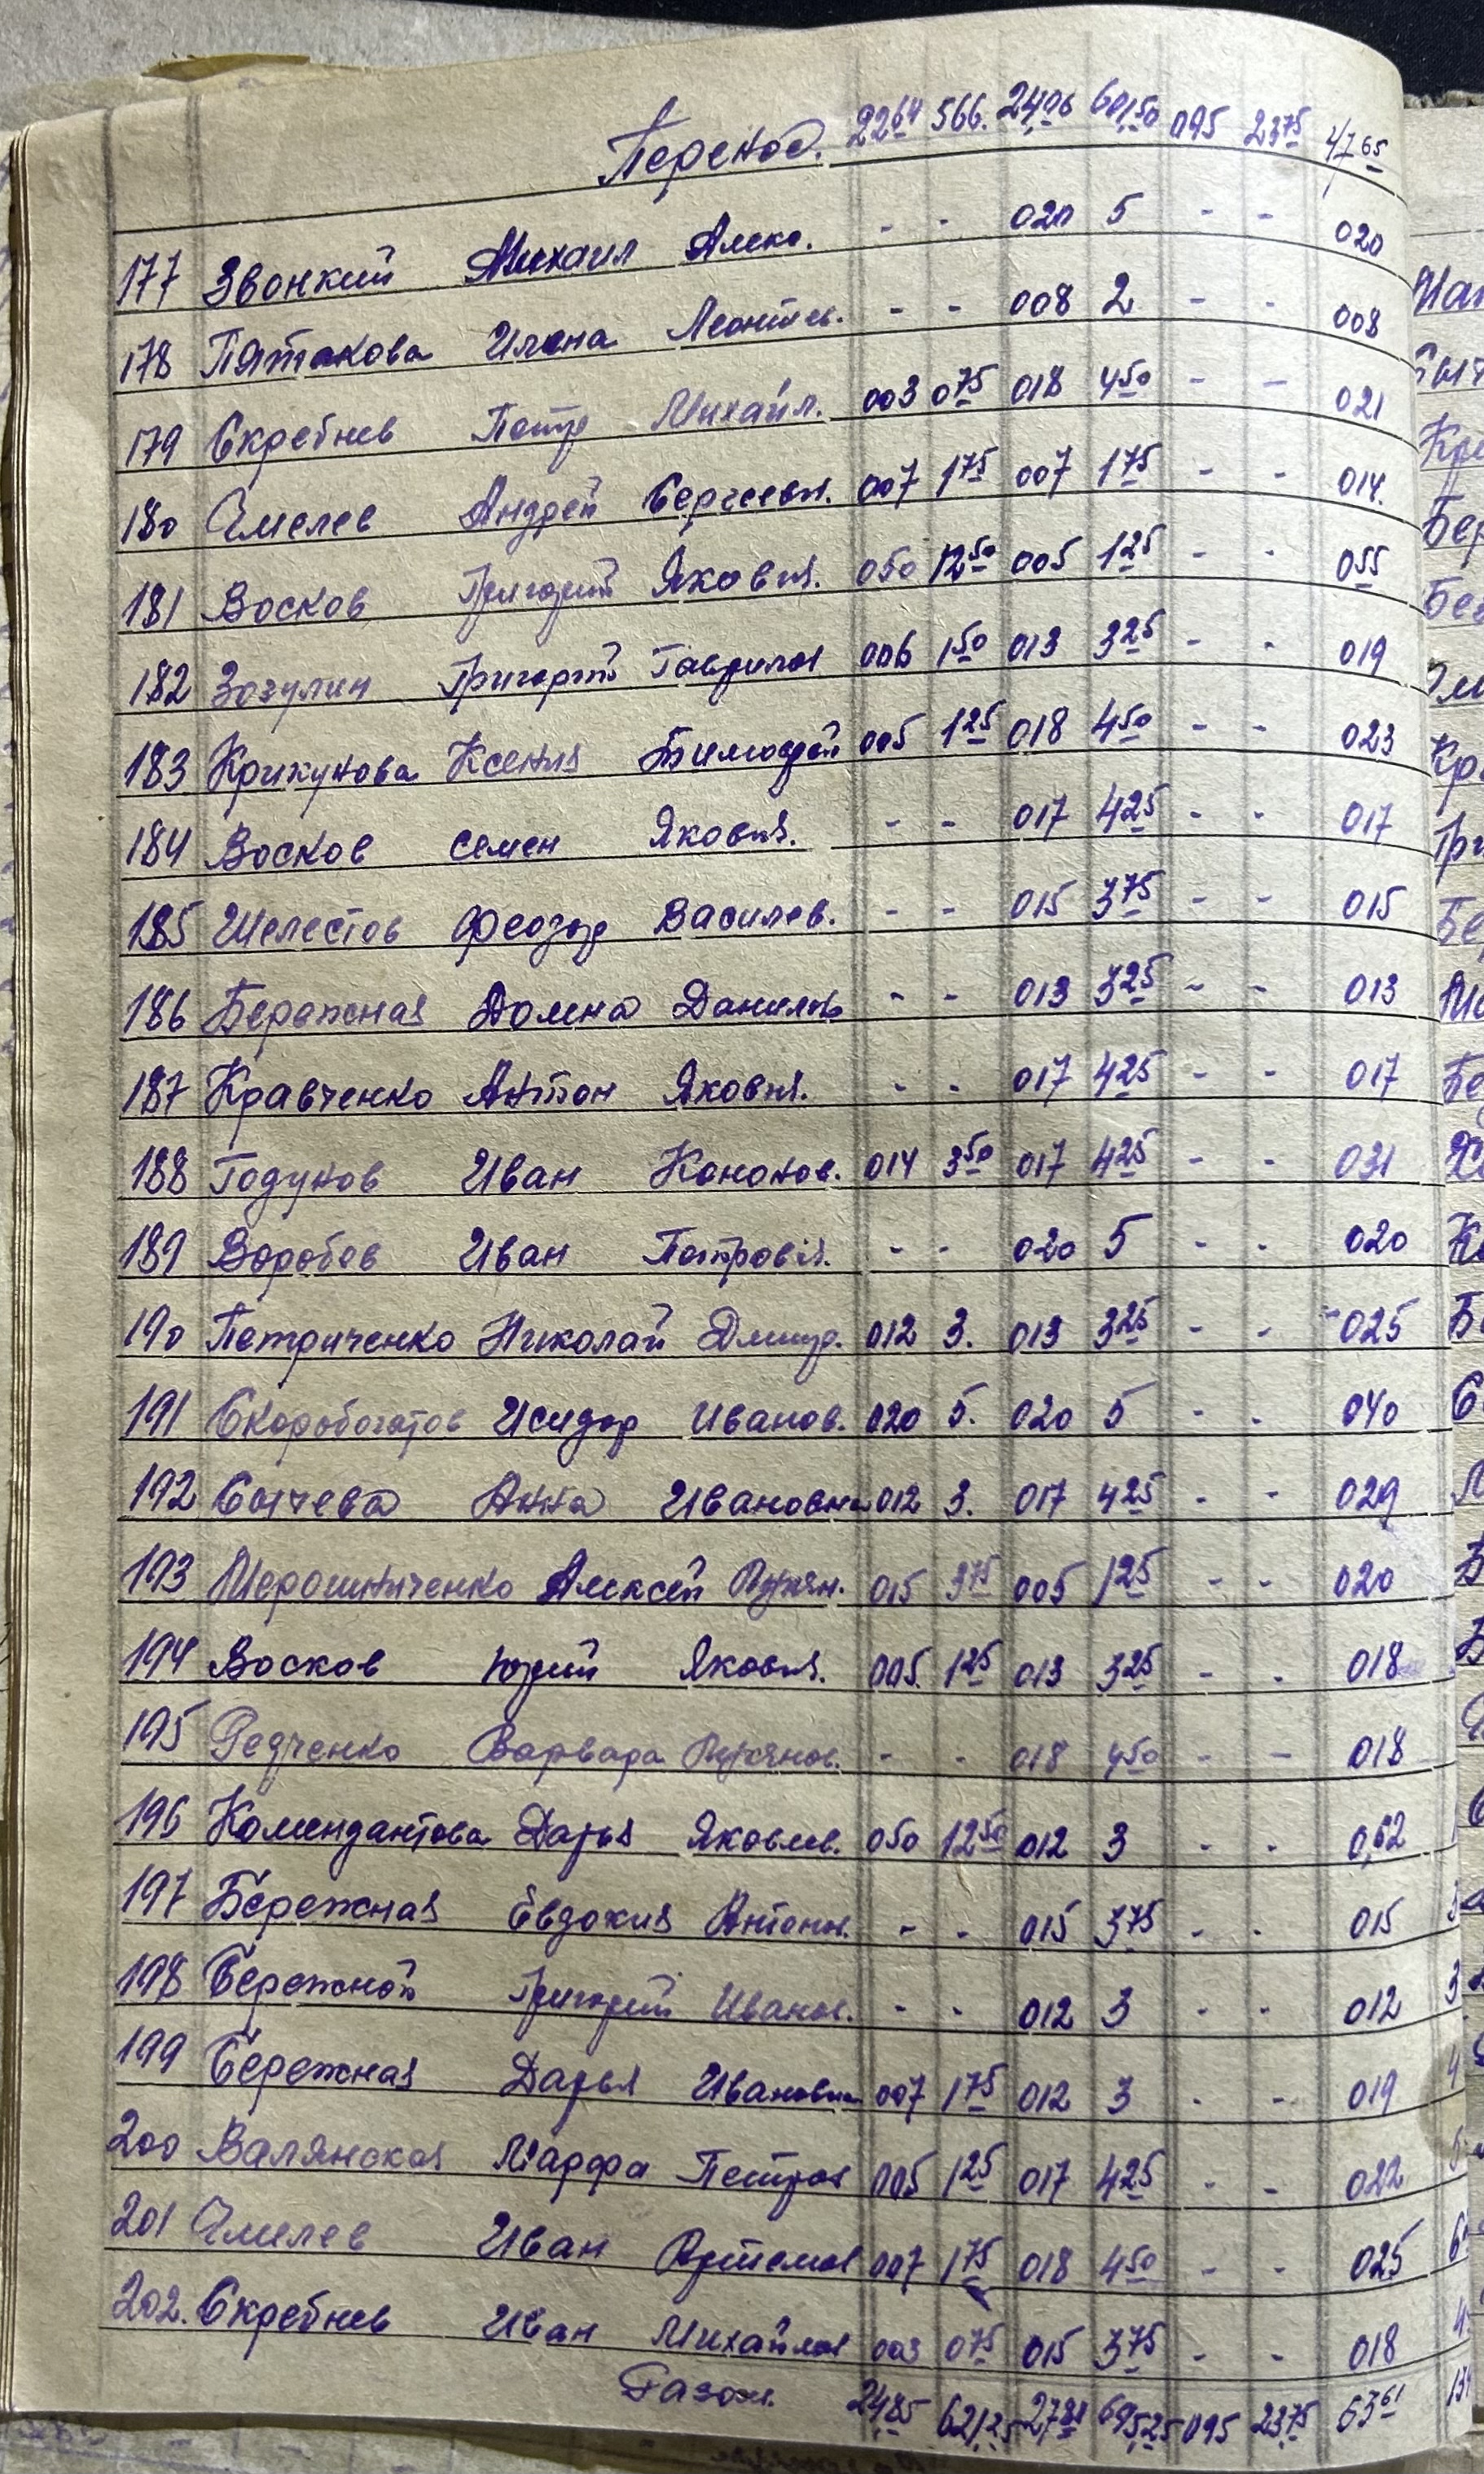 Перенос. 22 64 566. 24,06 601,50 095 23 75 47 65
177 Звонкий Михаил Алекс. - - 020 5 - - 020
178 Пятакова Илена Леонтьев. - - 008 2 - - 008
179 Скребнев Петр Михайл. 003 0 75 018 4 50 - - 021
180 Чмелев Андрей Сергееви. 007 1 75 007 1 75 - - 014.
181 Восков Григорий Яковл. 050 12 50 005 1 25 - - 055
182 Зозулин Григорий Гаврилов 006 1 50 013 3 25 - - 019
183 Крикунова Ксения Тимофей 005 1 25 018 4 50 - - 023
184 Восков Семен Яковл. - - 017 4 25 - - 017
185 Шелестов Феодор Василев. - - 015 3 75 - - 015
186 Бережная Домна Данилов - - 013 3 25 - - 013
187 Кравченко Антон Яковл. - - 017 4 25 - - 017
188 Годунов Иван Кононов. 014 3 50 017 4 25 - - 031
189 Воробев Иван Петрович. - - 020 5 - - 020
190 Петриченко Николай Дмитр. 012 3. 013 3 25 - - 025
191 Скоробогатов Исидор Иванов. 020 5. 020 5 - - 040
192 Сычева Анна Ивановна 012 3. 017 4 25 - - 029
193 Мерошниченко Алексей Лукян. 015 3 75 005 1 25 - - 020
194 Восков Юрий Яковл. 005. 1 25 013 3 25 - - 018
195 Редченко Варвара Лукянов. - - 018 4 50 - - 018
196 Комендантова Дарья Яковлев. 050 12 50 012 3 - - 0,62
197 Бережная Евдокия Антонов. - - 015 3 75 - - 015
198 Бережной Григорий Иванов. - - 012 3 - - 012
199 Бережная Дарья Ивановна 007 1 75 012 3 - - 019
200 Валянская Марфа Петров 005 1 25 017 4 25 - - 022
201 Чмелев Иван Артемов 007 1 75 018 4 50 - - 025
202. Скребнев Иван Михайлов 003 0 75 015 3 75 - - 018
Разом. 24,85 621,25 27,81 695,25 095 23,75 53 61